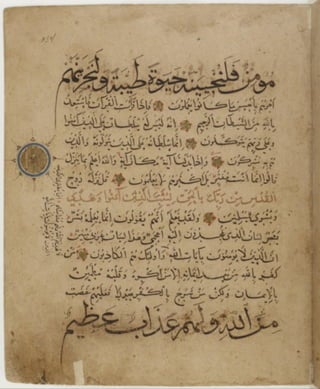 مومن فلنحيينه حيوة طيبة ولنجزينهم
اجرهم باحسن ما كانوا يعملون فاذا قرات القرآن فاستعذ
بالله من الشيطان الرجيم انه ليس له سلطان على الذين آمنوا
وعلى ربهم يتوكلون انما سلطانه على الذين يتولونه والذين
هم به مشركون واذا بدلنا آية مكان آية والله اعلم بما ينزل
قالوا انما انت مفتر بل اكثرهم لا يعلمون قل نزله روح
القدس من ربك بالحق ليثبت الذين آمنوا وهدى
وبشرى للمسلمين ولقد نعلم انهم يقولون انما يعلمه بشر
لسان الذي يلحدون اليه اعجمي وهذا لسان عربي مبين
ان الذين لا يومنون بآيات الله واولئك هم الكاذبون من
كفر بالله من بعد ايمانه الا من اكره وقلبه مطمئن
بالايمان ولكن من شرح بالكفر صدرا فعليهم غضب
من الله ولهم عذاب عظيم